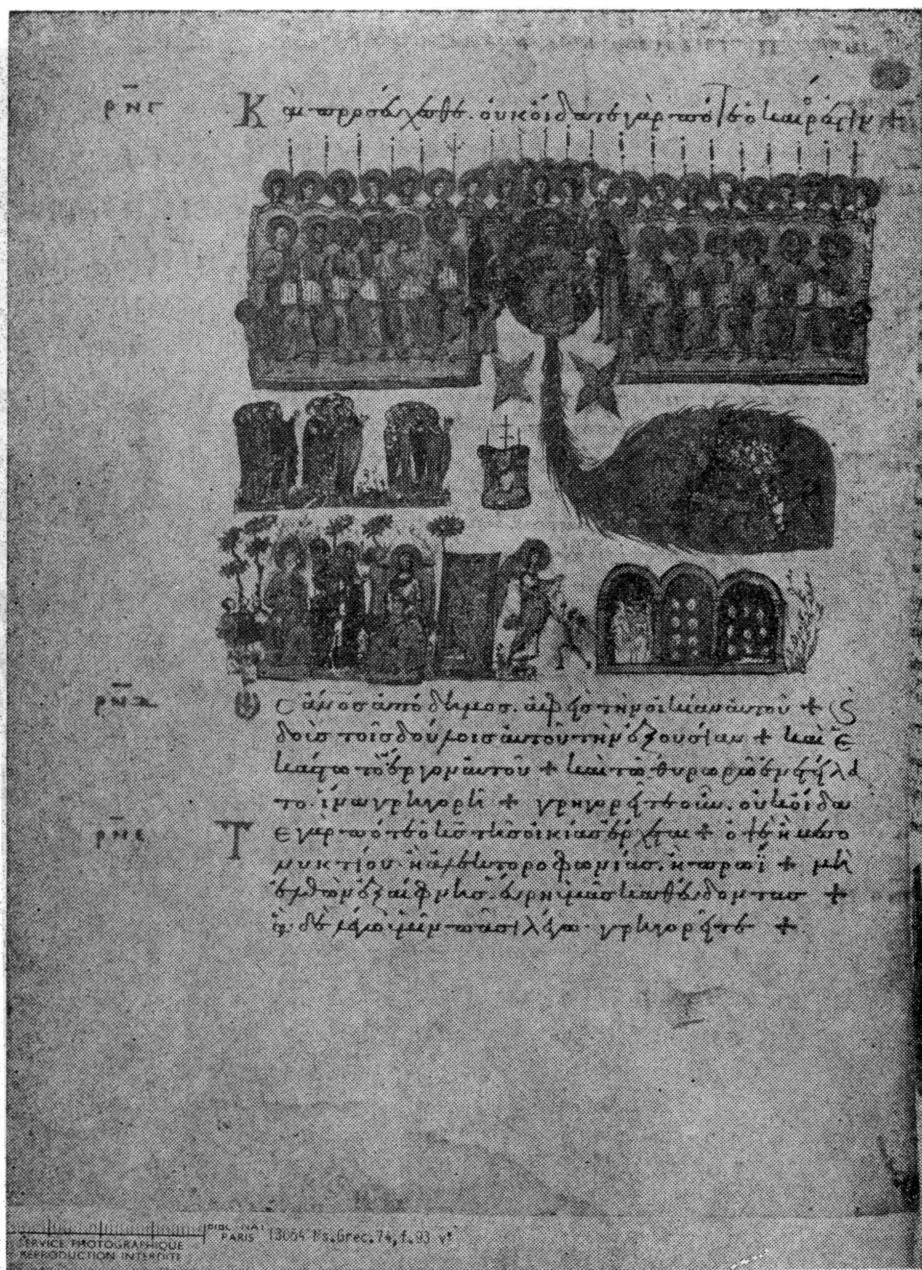 ρνγ Καὶ προσεύχεσθε. οὐκ οἴδατε γὰρ πότε ὁ καιρός ἐστιν +
ρνδ Ὡς ἄνος ἀπόδημος. ἀφεὶς τὴν οἰκίαν αὐτοῦ + ϗ
δοὺς τοῖς δούλοις αὐτοῦ τὴν ἐξουσίαν + καὶ ἑ
κάστω τὸ ἔργον αὐτοῦ + καὶ τῶ θυρωρῶ ἐνετείλα
το. ἵνα γρηγορῆ + γρηγορεῖτε οὖν. οὐκ οἴδα
ρνε Τε γὰρ πότε ὁ κς τῆς οἰκίας ἔρχεται + ὀψὲ ἢ μεσο
νυκτίου. ἢ ἀλεκτοροφωνίας. ἢ πρωῒ + μὴ
ἐλθὼν ἐξαίφνης. εὕρη ὑμᾶς καθεύδοντας +
ἃ δὲ λέγω ὑμῖν πᾶσι λέγω. γρηγορεῖτε +
SERVICE PHOTOGRAPHIQUE
REPRODUCTION INTERDITE
BIBL. NAT
PARIS 13064 Ms.Grec.74,f.93 v°